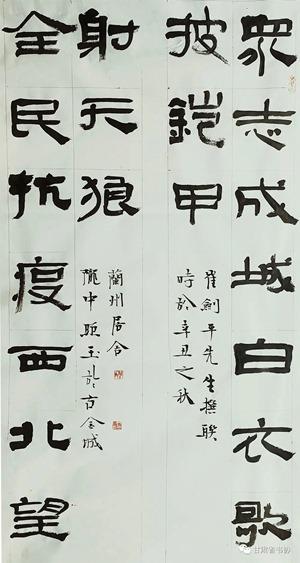 眾志成城白衣
披鎧甲
崔劍平先生撰聯
時於辛丑之秋
全民抗疫西北望
射天狼
蘭州居舍
隴中玉於古金城
甘肃省书协